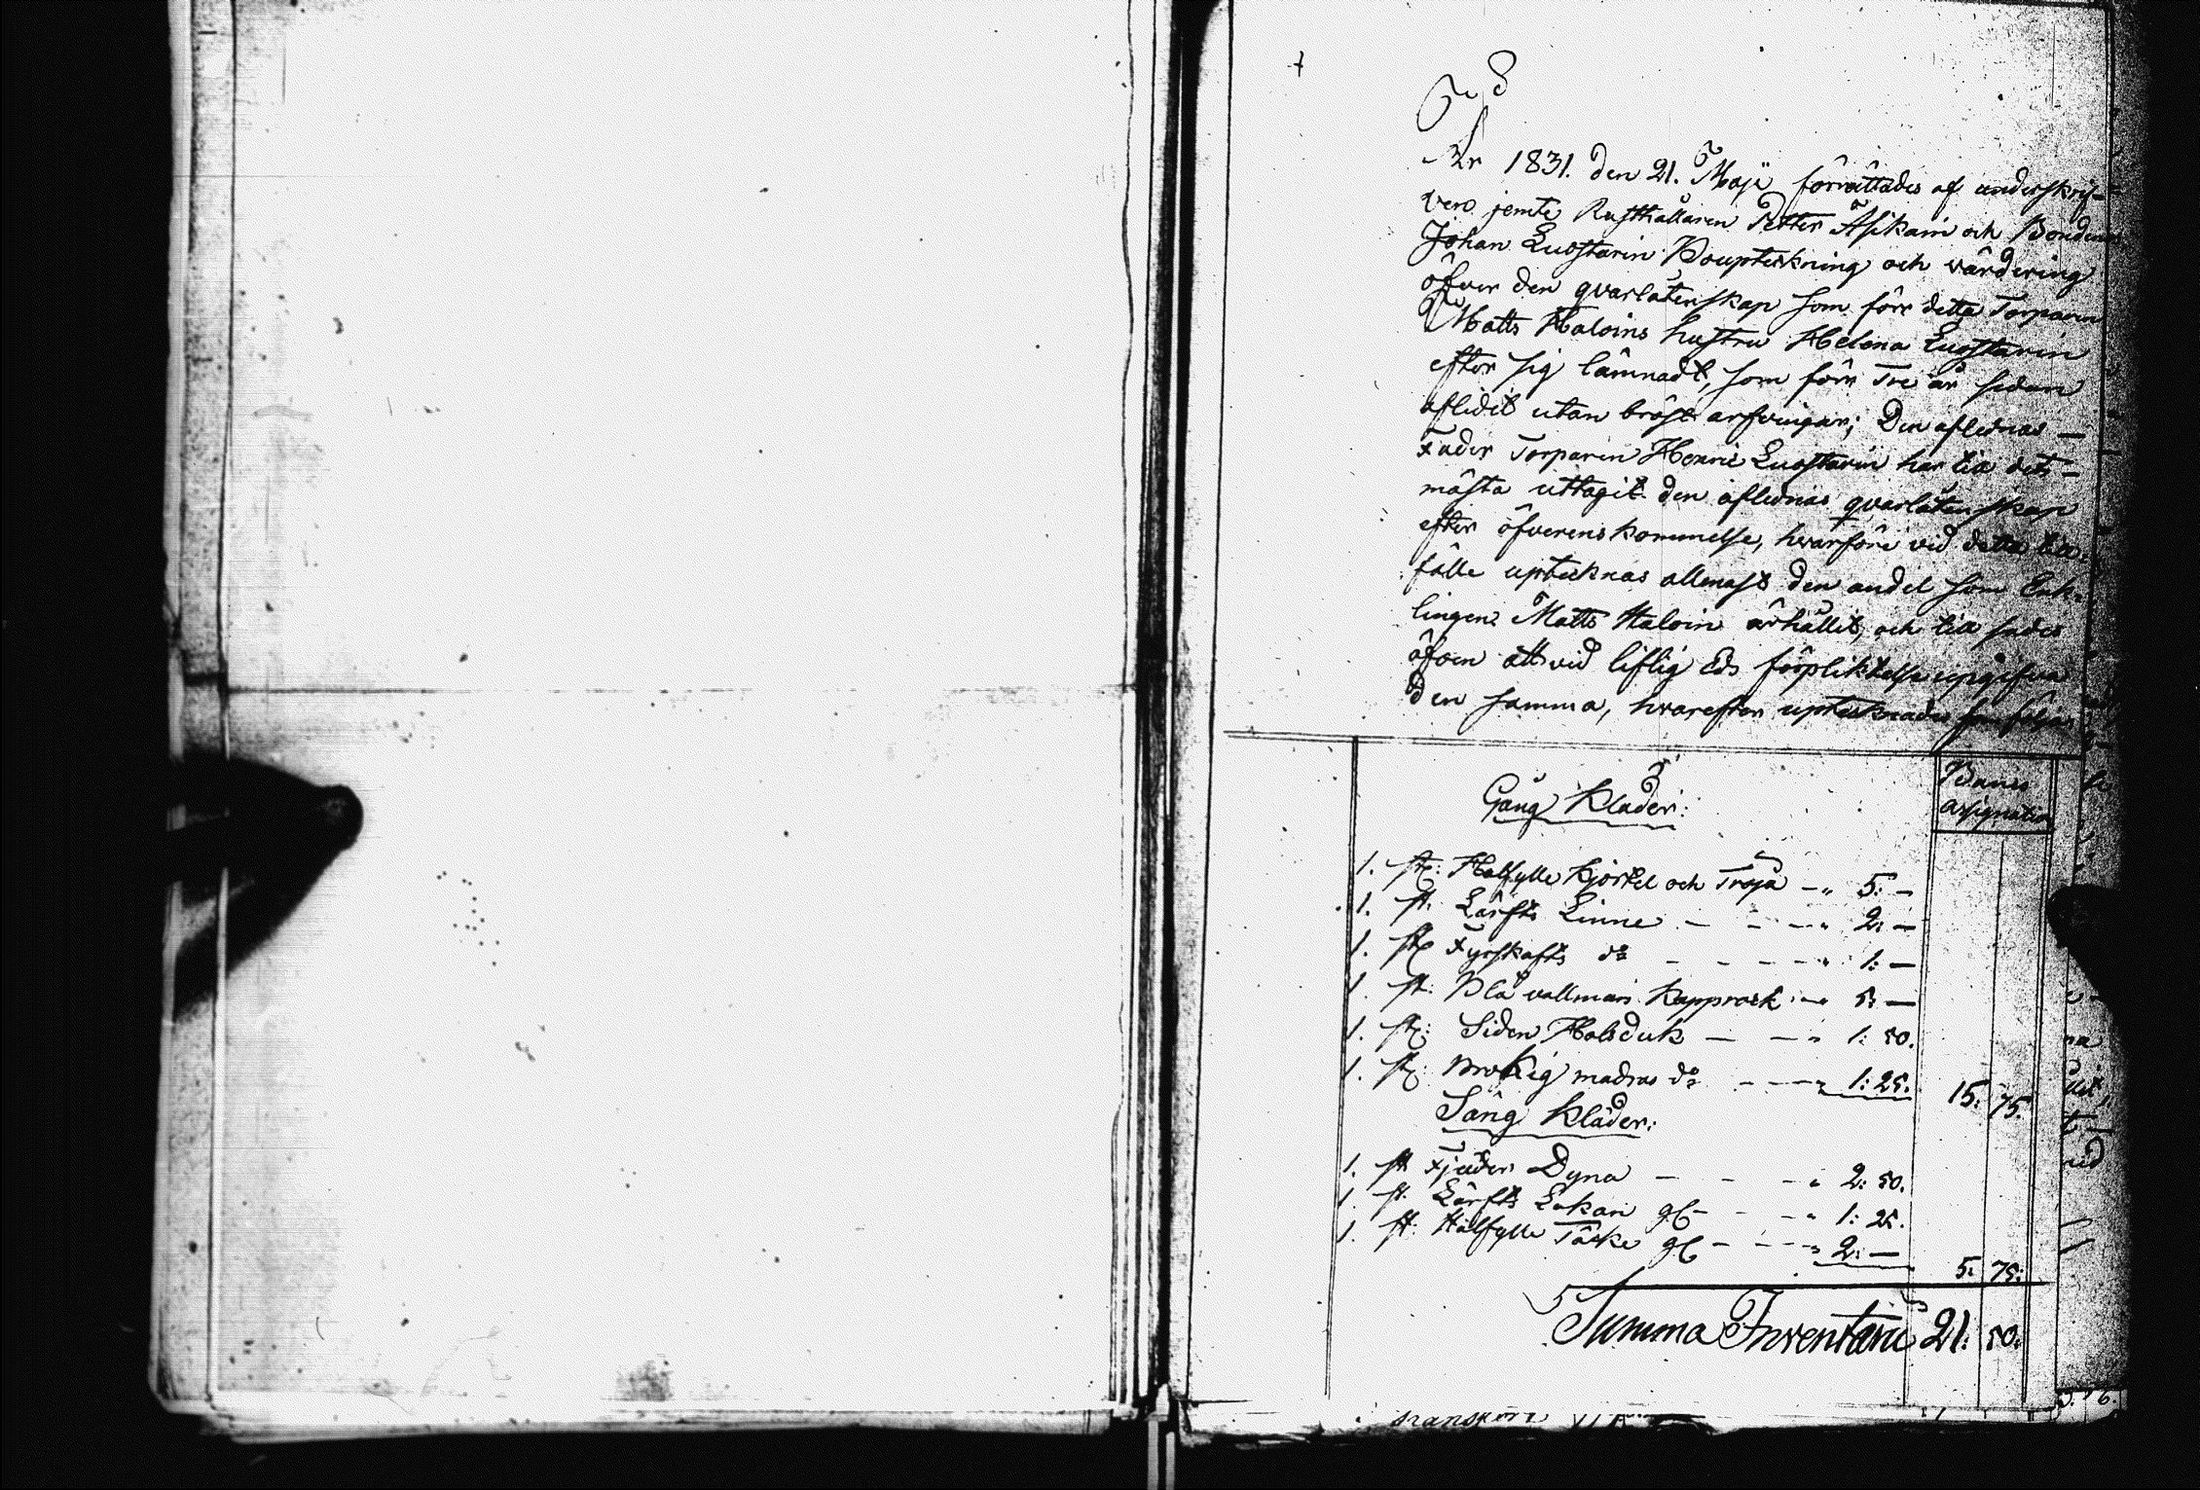 År 1831. den 21. Maji förrättades af underskrif-
ven jemte Rusthållaren Petter Asikain och Bonden
Johan Luostarin Bouptekning och värdering
öfver den qvarlåtenskap som förr detta Torparen
Matts Haloins hustru Helena Luostarin
efter sig lämnadt, som förr Tre år sedan
aflidit utan bröst arfvingar; Den aflednas —
Fader Torparen Henric Luostarin har till det-
mästa uttagit den aflednas qvarlåtenskap
efter öfverenskommelse, hvarföre vid detta till-
fälle upteknas allenast den andel som Enk-
lingen Matts Haloin ärhållit, och till
äfven att vid liflig Eds förpliktelse upgifva
den samma, hvarefter upteknades som följer
Gång Kläder:
Banco
assignation
1. st: Halfylle Kjortel och Tröja — " 5: —
1. st. Lärfts Linne — — — " 2: —
1. st Fyrskafts do — — — — " 1: —
1. st: Blå vallmans Kapprock — " 5: —
1. st: Siden Halsduk — — " 1: 50.
1. st: Brokig madras do — — — " 1: 25. 15: 75.
Säng Kläder:
1. st Fjäder Dyna — — — " 2: 50.
1. st. Lärfts Lakan gl — — " 1: 25.
1. st: Halfylle Täcke gl — — — " 2: —
5: 75:
Summa Inventarii 21: 50.